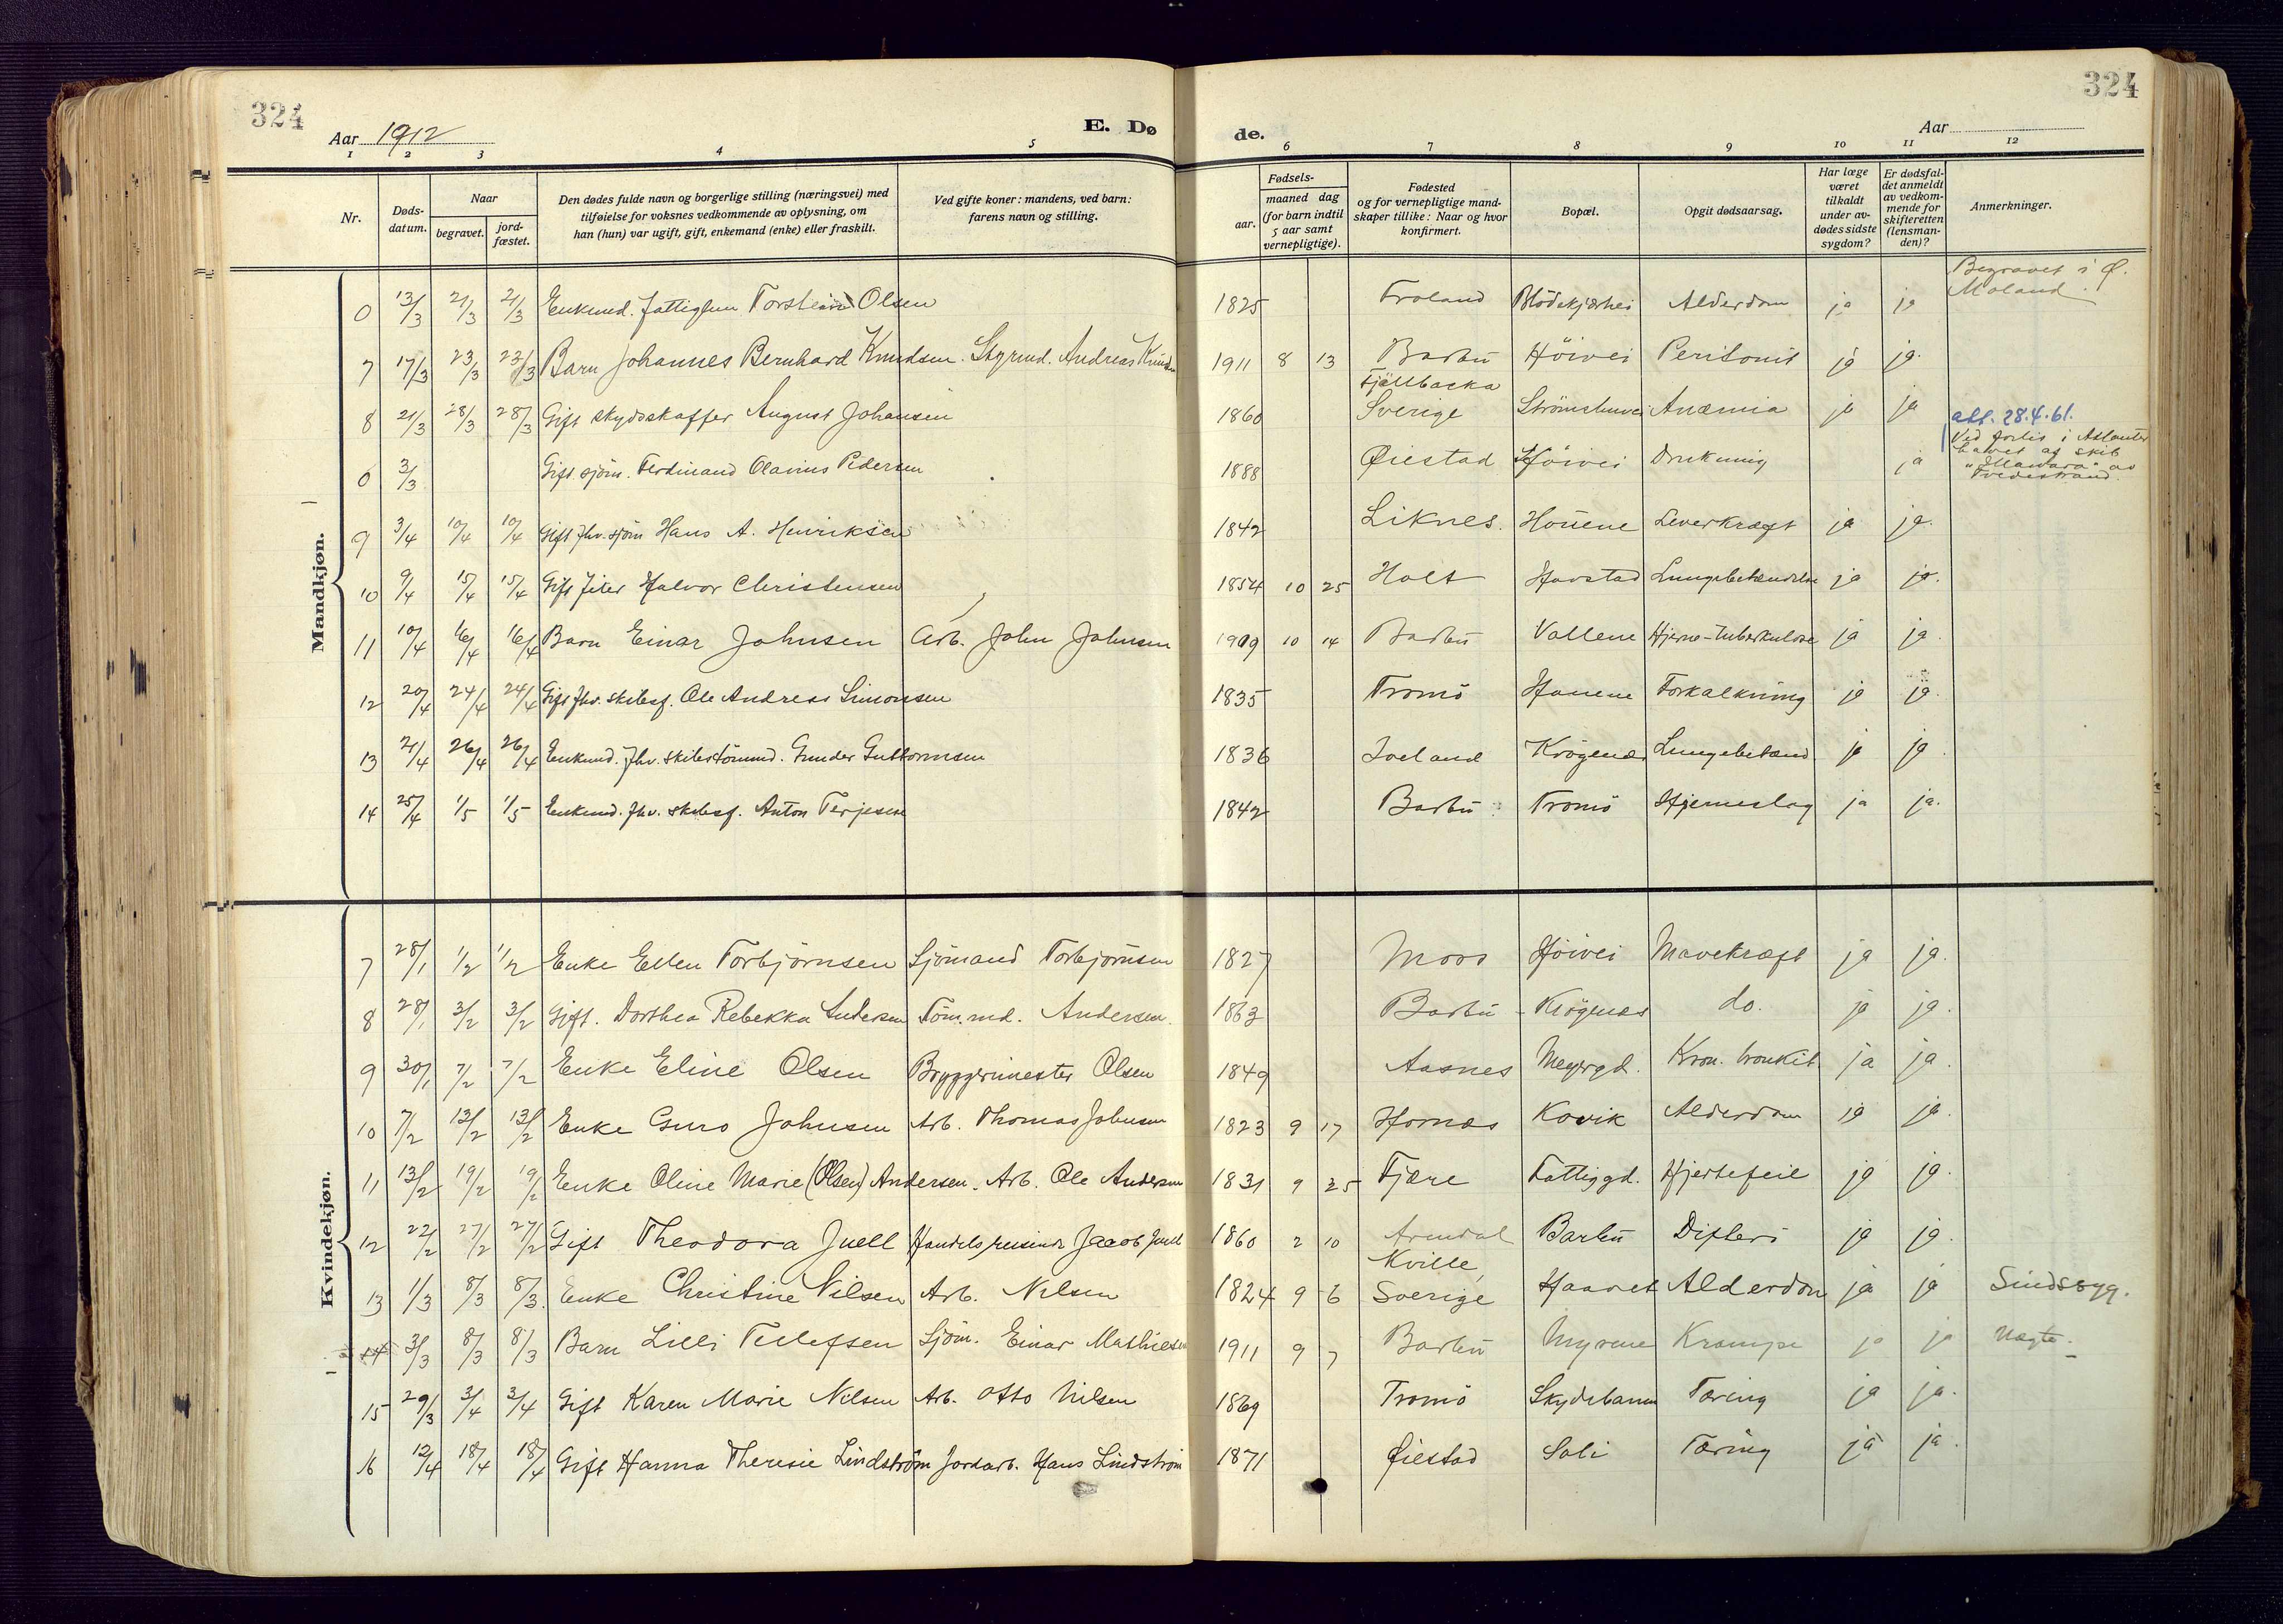 324
324
Aar 1912
E. Dø
de.
Aar
1 2 3 4 5 6 7 8 9 10 11 12
Nr.
Døds-
datum.
Naar
begravet.
jord-
fæstet.
Den dødes fulde navn og borgerlige stilling (næringsvei) med
tilføielse for voksnes vedkommende av oplysning, om
han (hun) var ugift, gift, enkemand (enke) eller fraskilt.
Ved gifte koner: mandens, ved barn:
farens navn og stilling.
Fødsels-
aar.
maaned dag
(for barn indtil
5 aar samt
vernepligtige).
Fødested
og for vernepligtige mand-
skaper tillike: Naar og hvor
konfirmert.
Bopæl.
Opgit dødsaarsag.
Har læge
været
tilkaldt
under av-
dødes sidste
sygdom?
Er dødsfal-
det anmeldt
av vedkom-
mende for
skifteretten
(lensman-
den)?
Anmerkninger.
Mandkjøn.
0 13/3 21/3 21/3 Enkmd. Fattiglem Torstein Olsen 1825 Froland Blödekjærhei Alderdom ja ja Begravet i Ø. Moland.
7 17/3 23/3 23/3 Barn Johannes Bernhard Knudsen. Styrmd. Andreas Knudsen 1911 8 13 Barbu Höivei Peritonit ja ja.
8 21/3 28/3 28/3 Gift skydsskaffer August Johansen 1860 Fjällbacka Sverige Strömsbuvei Anæmia ja ja
0 3/3 Gift. sjöm. Ferdinand Olavius Pedersen 1888 Øiestad Höivei Drukning ja
att. 28.4.61.
Ved forlis i Atlanter
havet af skib
"Illawara" av
Tvedestrand.
9 3/4 10/4 10/4 Gift fhv. sjöm Hans A. Henriksen 1842 Liknes. Houene Leverkræft ja ja.
10 9/4 15/4 15/4 Gift Halvor Christensen 1854 10 25 Holt Havstad Lungebetændelse ja ja.
11 10/4 16/4 16/4 Barn Einar Johnsen Arb. John Johnsen 1909 10 14 Barbu Vollene Hjerne-tuberkulose ja ja.
12 20/4 24/4 24/4 Gift fhv. skibsf. Ole Andreas Simonsen 1835 Tromö Houene Forkalkning ja ja.
13 21/4 26/4 26/4 Enkmd. fhv. skibstömmd. Gunder Guttormsen 1836 Iveland Krögenæs Lungebetænd ja ja.
14 25/4 1/5 1/5 Enkmd. fhv. skibsf. Anton Terjesen 1842 Barbu Tromö Hjerneslag ja ja.
Kvindekjøn.
7 28/1 1/2 1/2 Enke Ellen Torbjörnsen Sjömand Torbjörnsen 1827 Moss Höivei Mavekræft ja ja.
8 28/1 3/2 3/2 Gift. Dorthea Rebekka Andersen Töm.md. Andersen. 1863 Barbu Krögenæs do. ja ja.
9 30/1 7/2 7/2 Enke Eline Olsen Bryggerimester Olsen 1849 Aasnes Meyergd. Kron. bronkit ja ja.
10 7/2 13/2 13/2 Enke Guro Johnsen Arb. Thomas Johnsen 1823 9 17 Hornæs Kovik Alderdom ja ja.
11 13/2 19/2 19/2 Enke Oline Marie (Olsen) Andersen. Arb. Ole Andersen 1831 9 25 Fjære Fattiggd. Hjertefeil ja ja.
12 22/2 27/2 27/2 Gift Theodora Juell Handelsreisende Jacob Juell 1860 2 10 Arendal Barbu Difteri ja ja.
13 1/3 8/3 8/3. Enke Christine Nilsen Arb. Nilsen 1824 9 6 Kville, Sverige Haavet Alderdom ja ja Sindssyg.
14 3/3 8/3 8/3 Barn Lilli Tellefsen Sjöm. Einar Mathiesen 1911 9 7 Barbu Myrene Krampe ja ja Uægte.
15 29/3 3/4 3/4 Gift Karen Marie Nilsen Arb. Otto Nilsen 1869 Tromö Skydebanen Tæring ja ja.
16 12/4 18/4 18/4 Gift Hanna Theresie Lindström Jordarb. Hans Lindström 1871 Øiestad Soli Tæring ja ja.